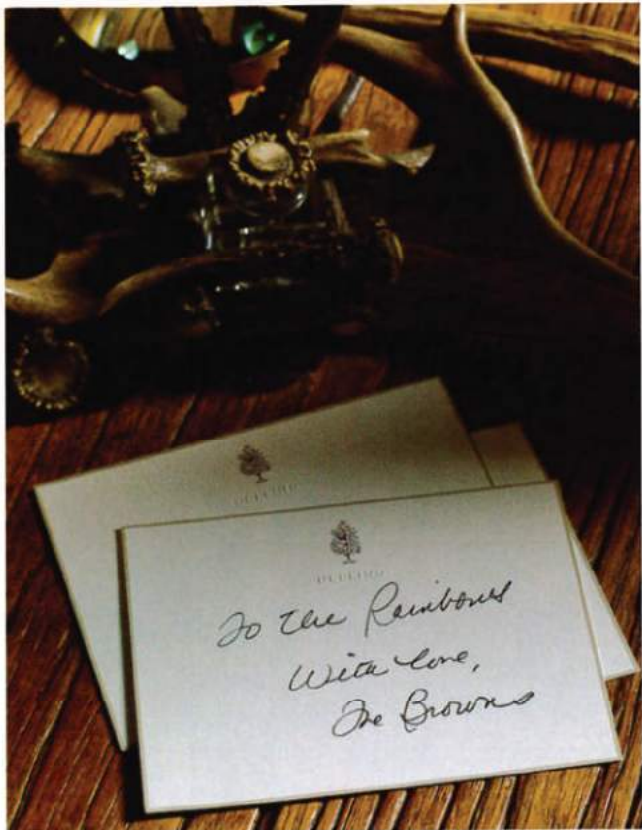 To The Rainbows
With Love,
The Browns